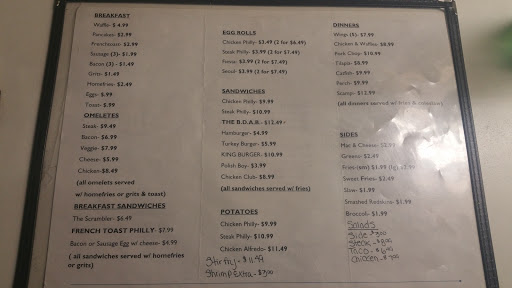 BREAKFAST
Waffle- $ 4.99
Pancakes- $3.99
Frenchtoast- $2.99
Sausage (2)- $1.99
Bacon (3) - $1.49
Grits- $1.49
Homefries- $2.49
Eggs- $.99
Toast- $.99
OMELETES
Steak- $9.49
Bacon- $6.99
Veggie- $7.99
Cheese- $5.99
Chicken- $8.49
(all omelets served
w/ homefries or grits & toast)
BREAKFAST SANDWICHES
The Scrambler- $6.49
FRENCH TOAST PHILLY- $7.99
Bacon or Sausage Egg w/ cheese- $4.99
( all sandwiches served w/ homefries
or grits)
EGG ROLLS
Chicken Philly- $3.49 (2 for $6.49)
Steak Philly- $3.99 (2 for $7.49)
$3.99 (2 for $7.49)
$3.99 (2 for $7.49)
SANDWICHES
Chicken Philly- $9.99
Steak Philly- $10.99
THE B.D.A.B.- $12.49
Hamburger- $4.99
Turkey Burger- $5.99
KING BURGER- $10.99
Polish Boy- $3.99
Chicken Club- $8.99
(all sandwiches served w/ fries)
POTATOES
Chicken Philly- $9.99
Steak Philly- $10.99
Chicken Alfredo- $11.49
Stir fry - $11.99
Shrimp Extra - $3.00
DINNERS
Wings (5)- $7.99
Chicken & Waffles- $8.99
Pork Chop- $10.99
Tilapia- $8.99
Catfish- $9.99
Perch- $9.99
$12.99
(all dinners served w/ fries & coleslaw)
SIDES
Mac & Cheese-
Greens- $2.49
Fries-(sm) $1.99 (lg)
Sweet Fries- $2.49
Slaw- $1.99
Smashed Redskins- $1.99
Broccoli- $1.99
Salads
Side $3.00
Steak - $8.00
Taco - $6.00
Chicken - $7.00